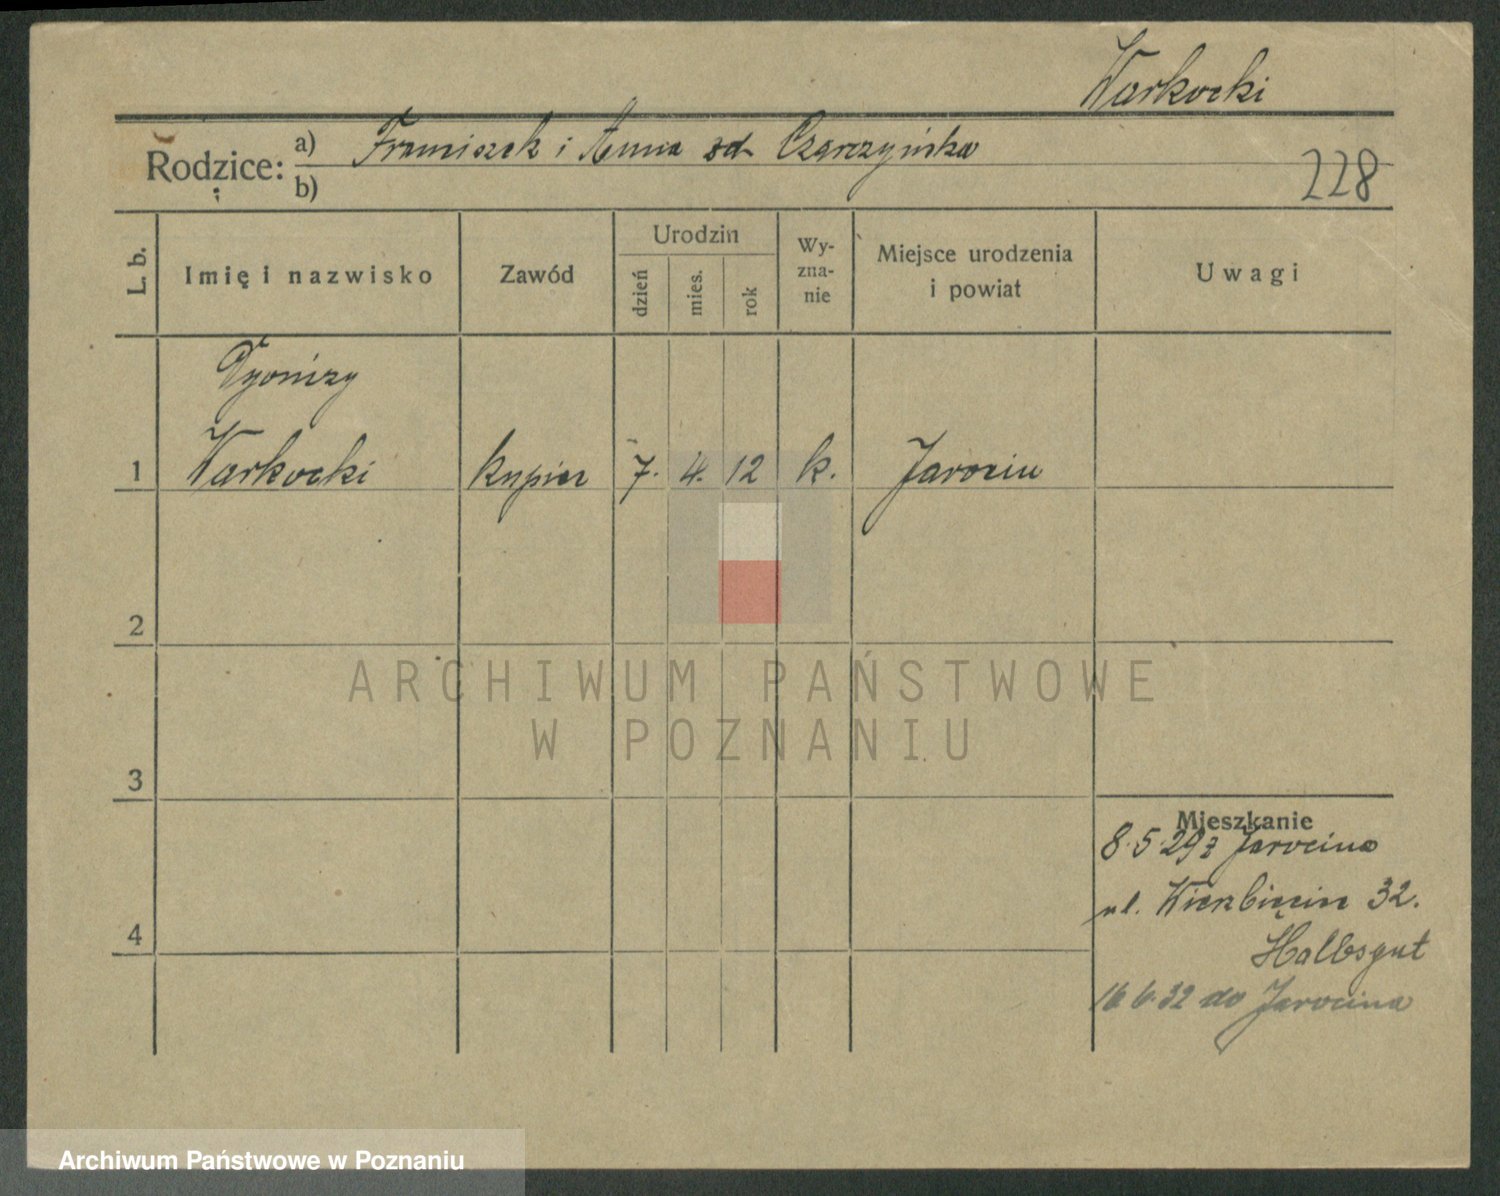 Warkocki
Rodzice: a) Franciszek i Anna zd Czarczyńska
b)
228
L. b.
Imię i nazwisko
Zawód
Urodzin
dzień
mies.
rok
Wy-
zna-
nie
Miejsce urodzenia
i powiat
Uwagi
Dyonizy
1 Warkocki kupiec 7. 4. 12 k. Jarocin
2
3
4
Mieszkanie
8.5.29 z Jarocina
ul. Wierzbięcice 32.
Halbsgut
16.6.32 do Jarocina
ARCHIWUM PAŃSTWOWE
W POZNANIU
Archiwum Państwowe w Poznaniu